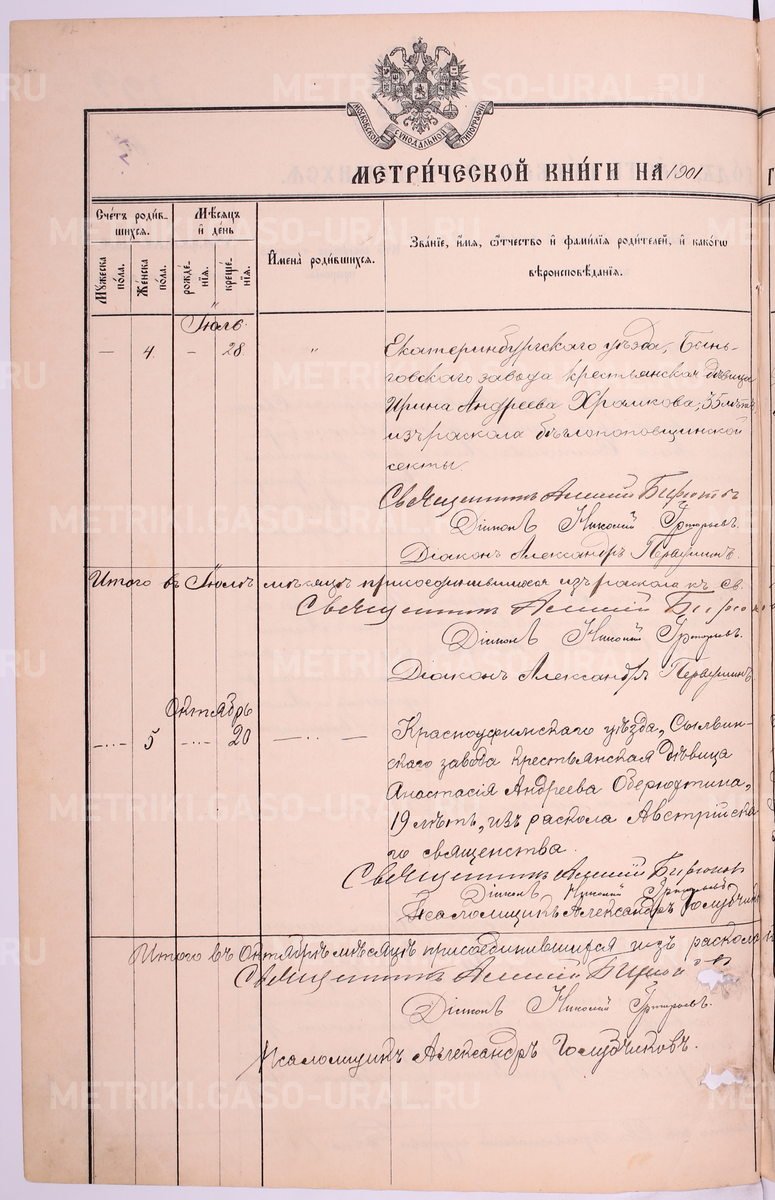 МОСКОВСКОЙ СѴНОДАЛЬНОЙ ТИПОГРАФІИ
МЕТРИ́ЧЕСКОЙ КНИ́ГИ НА 1901
Сче́тъ роди́в-
шихся.
Мѣ́сяцъ
и҆ де́нь
И҆мена̀ роди́вшихся.
Зва́нїе, и҆́мя, ѻ҆́тчество и҆ фами́лїя роди́телей, и҆ како́гѡ
вѣроисповѣ́данїя.
Му́жеска по́ла.
Же́нска по́ла.
рожде́-нїя.
креще́-нїя.
Іюль.
— 4. — 28. „ Екатеринбургскаго уѣзда, Бынь-
говскаго завода крестьянская дѣвица
Ирина Андреева Храмкова, 35 лѣтъ
изъ раскола бѣлопоповщинской
секты.
Священникъ Алексій Бирюковъ
Діаконъ Николай Григорьевъ.
Діаконъ Александръ Первушинъ.
Итого въ Іюлѣ мѣсяцѣ присоединившихся изъ раскола къ св.
Священникъ Алексій Бирюков
Діаконъ Николай Григорьевъ.
Діаконъ Александръ Первушинъ.
Октябрь
—..— 5 —..— 20 — — — Красноуфимскаго уѣзда, Сылвин-
скаго завода крестьянская дѣвица
Анастасія Андреева Оберюхтина,
19 лѣтъ, изъ раскола Австрійска
го священства.
Священникъ Алексій Бирюков
Діаконъ Николай Григорьевъ
Псаломщикъ Александръ Голубчиков
Итого въ Октябрѣ мѣсяцѣ присоединившихся изъ раскола
Священникъ Алексій Бирюков
Діаконъ Николай Григорьевъ.
Псаломщикъ Александръ Голубчиковъ.
METRIKI.GASO-URAL.RU